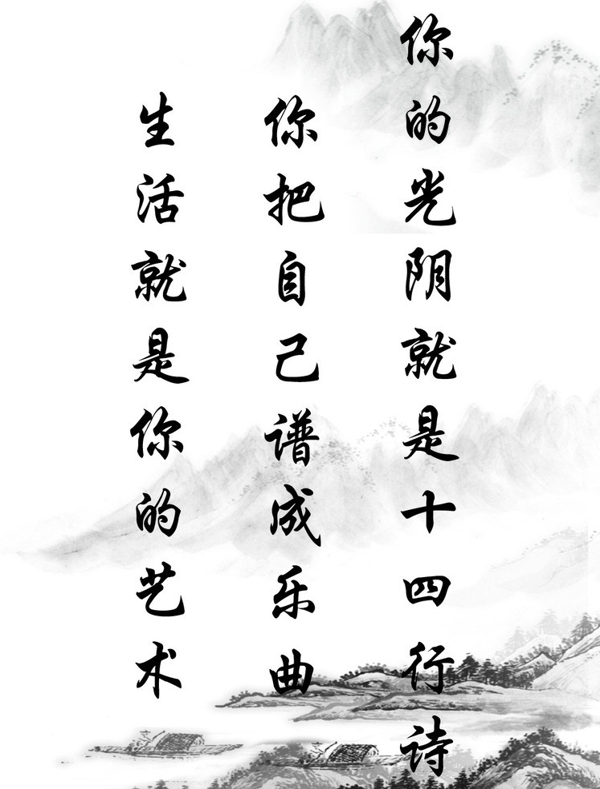 生活就是你的艺术
你把自己谱成乐曲
你的光阴就是十四行诗